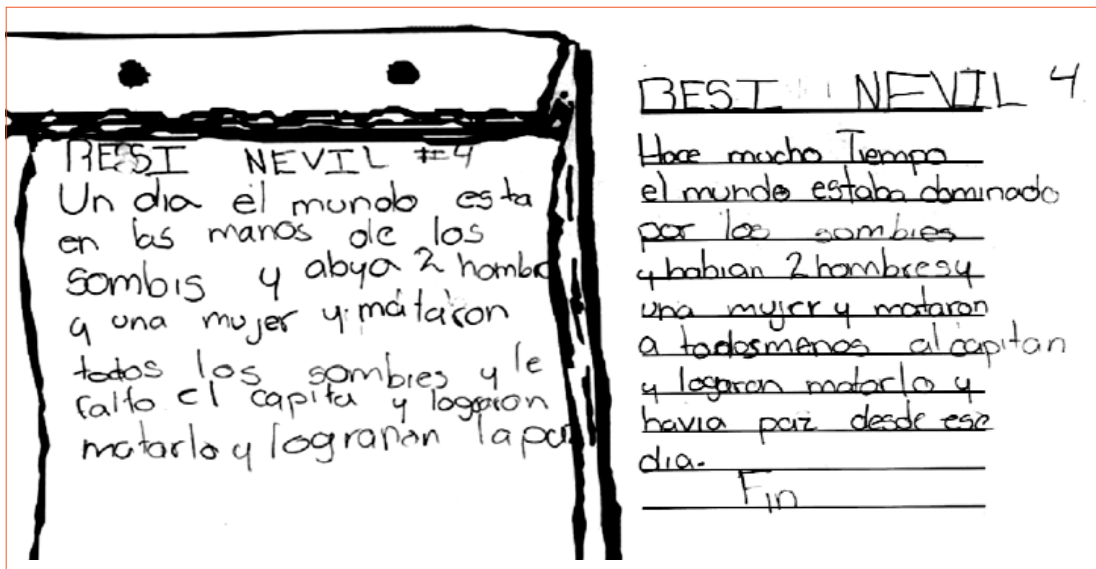 RESI NEVIL #4
Un dia el mundo esta
en las manos de los
sombis y abya 2 hombre
y una mujer y mataron
todos los sombies y le
falto el capita y logaron
matarlo y lograran la paz
RESI NEVIL 4
Hace mucho Tiempo
el mundo estaba dominado
por los sombies
y habian 2 hombres y
una mujer y mataron
a todos menos al capitan
y logaron matarlo y
havia paz desde ese
dia.
Fin